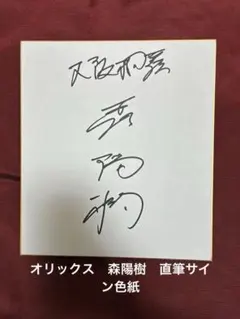 大阪桐蔭
森
陽
樹
オリックス 森陽樹 直筆サイ
ン色紙